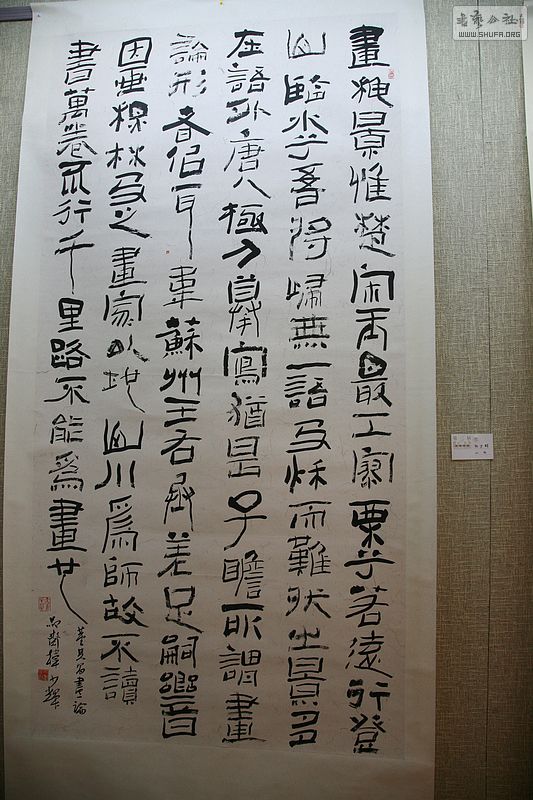 書藝公社
WWW.SHUFA.ORG
畫秋景惟楚宋玉最工寥栗兮若遠行登
山臨水兮吾將歸無一語及秋而難狀之景多
在語外唐人極力摹寫猶是子瞻所謂畫
論形者侣耳韋蘇州王右丞差足嗣響
因垂林及之畫家以地山川為師故不讀
書萬卷不行千里路不能為畫也
董其昌畫論